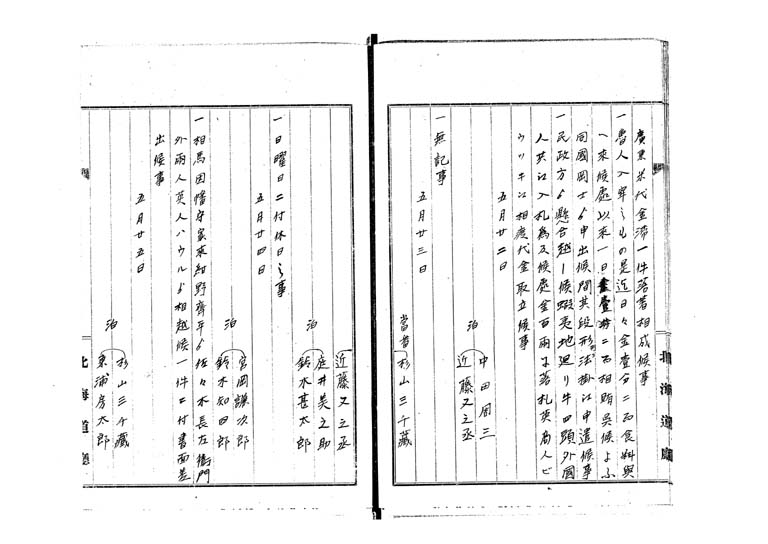 廣東米代金滞一件落着相成候事
一魯人入牢之もの是迄日々金壹分ニ而食料與
へ来候處以来一日ニ而相賄呉候よふ
同國岡士ゟ申出候間其段形法掛江申遣候事
一民政方ゟ懸合越し候蝦夷地廻り牛四頭外國
人共江入札為及候處金百両ニ落札英商人ビ
ウリキ江相渡代金取立候事
五月廿二日
中田周三
泊
近藤又之丞
一無記事
五月廿三日
當直
杉山三千藏
近藤又之丞
庭井美之助
泊
鈴木甚太郎
一日曜日ニ付休日之事
五月廿四日
宮岡謙次郎
泊
鈴木知四郎
一相馬因幡守家来紺野齊平ゟ佐々木長左衛門
外両人英人ハウルゟ相越候一件ニ付書面差
出候事
五月廿五日
杉山三千藏
泊
東浦房太郎
北海道廳
北海道廳